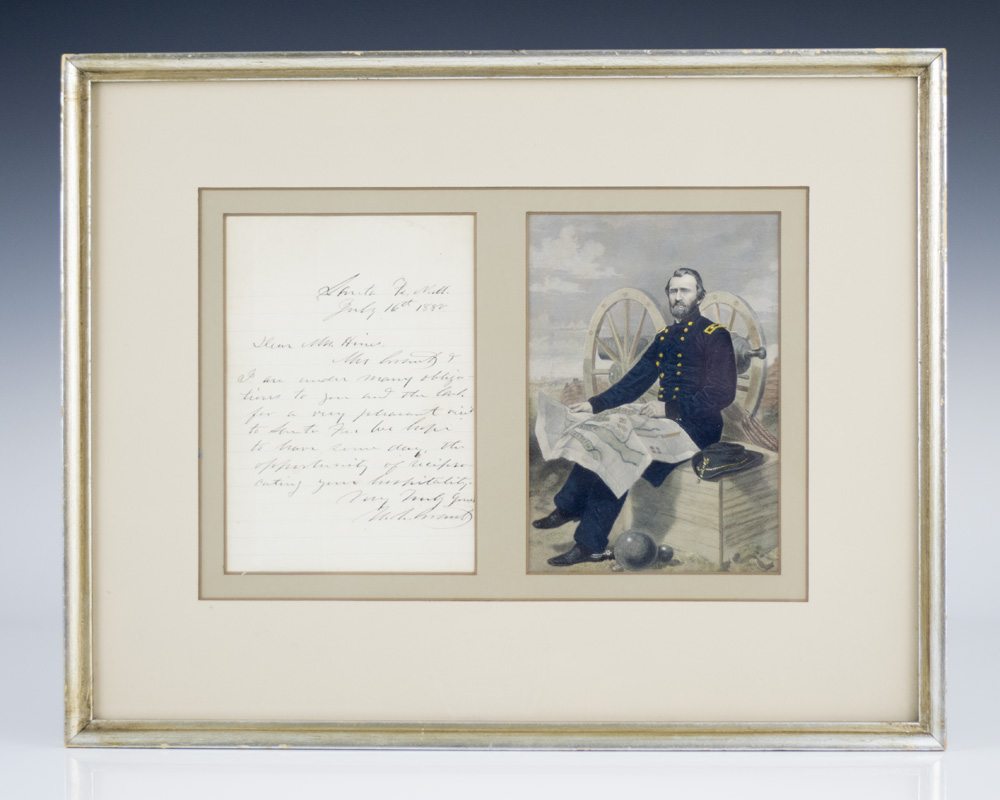 Santa Fe, N.M.
July 16th 1880
Dear Mr. Hines
Mrs Grant &
I are under many obliga-
tions to you and the
for a very pleasant visit
to Santa Fe. We hope
to have some day, the
opportunity of recipro-
cating your hospitality.
Very Truly Yours
U. S. Grant